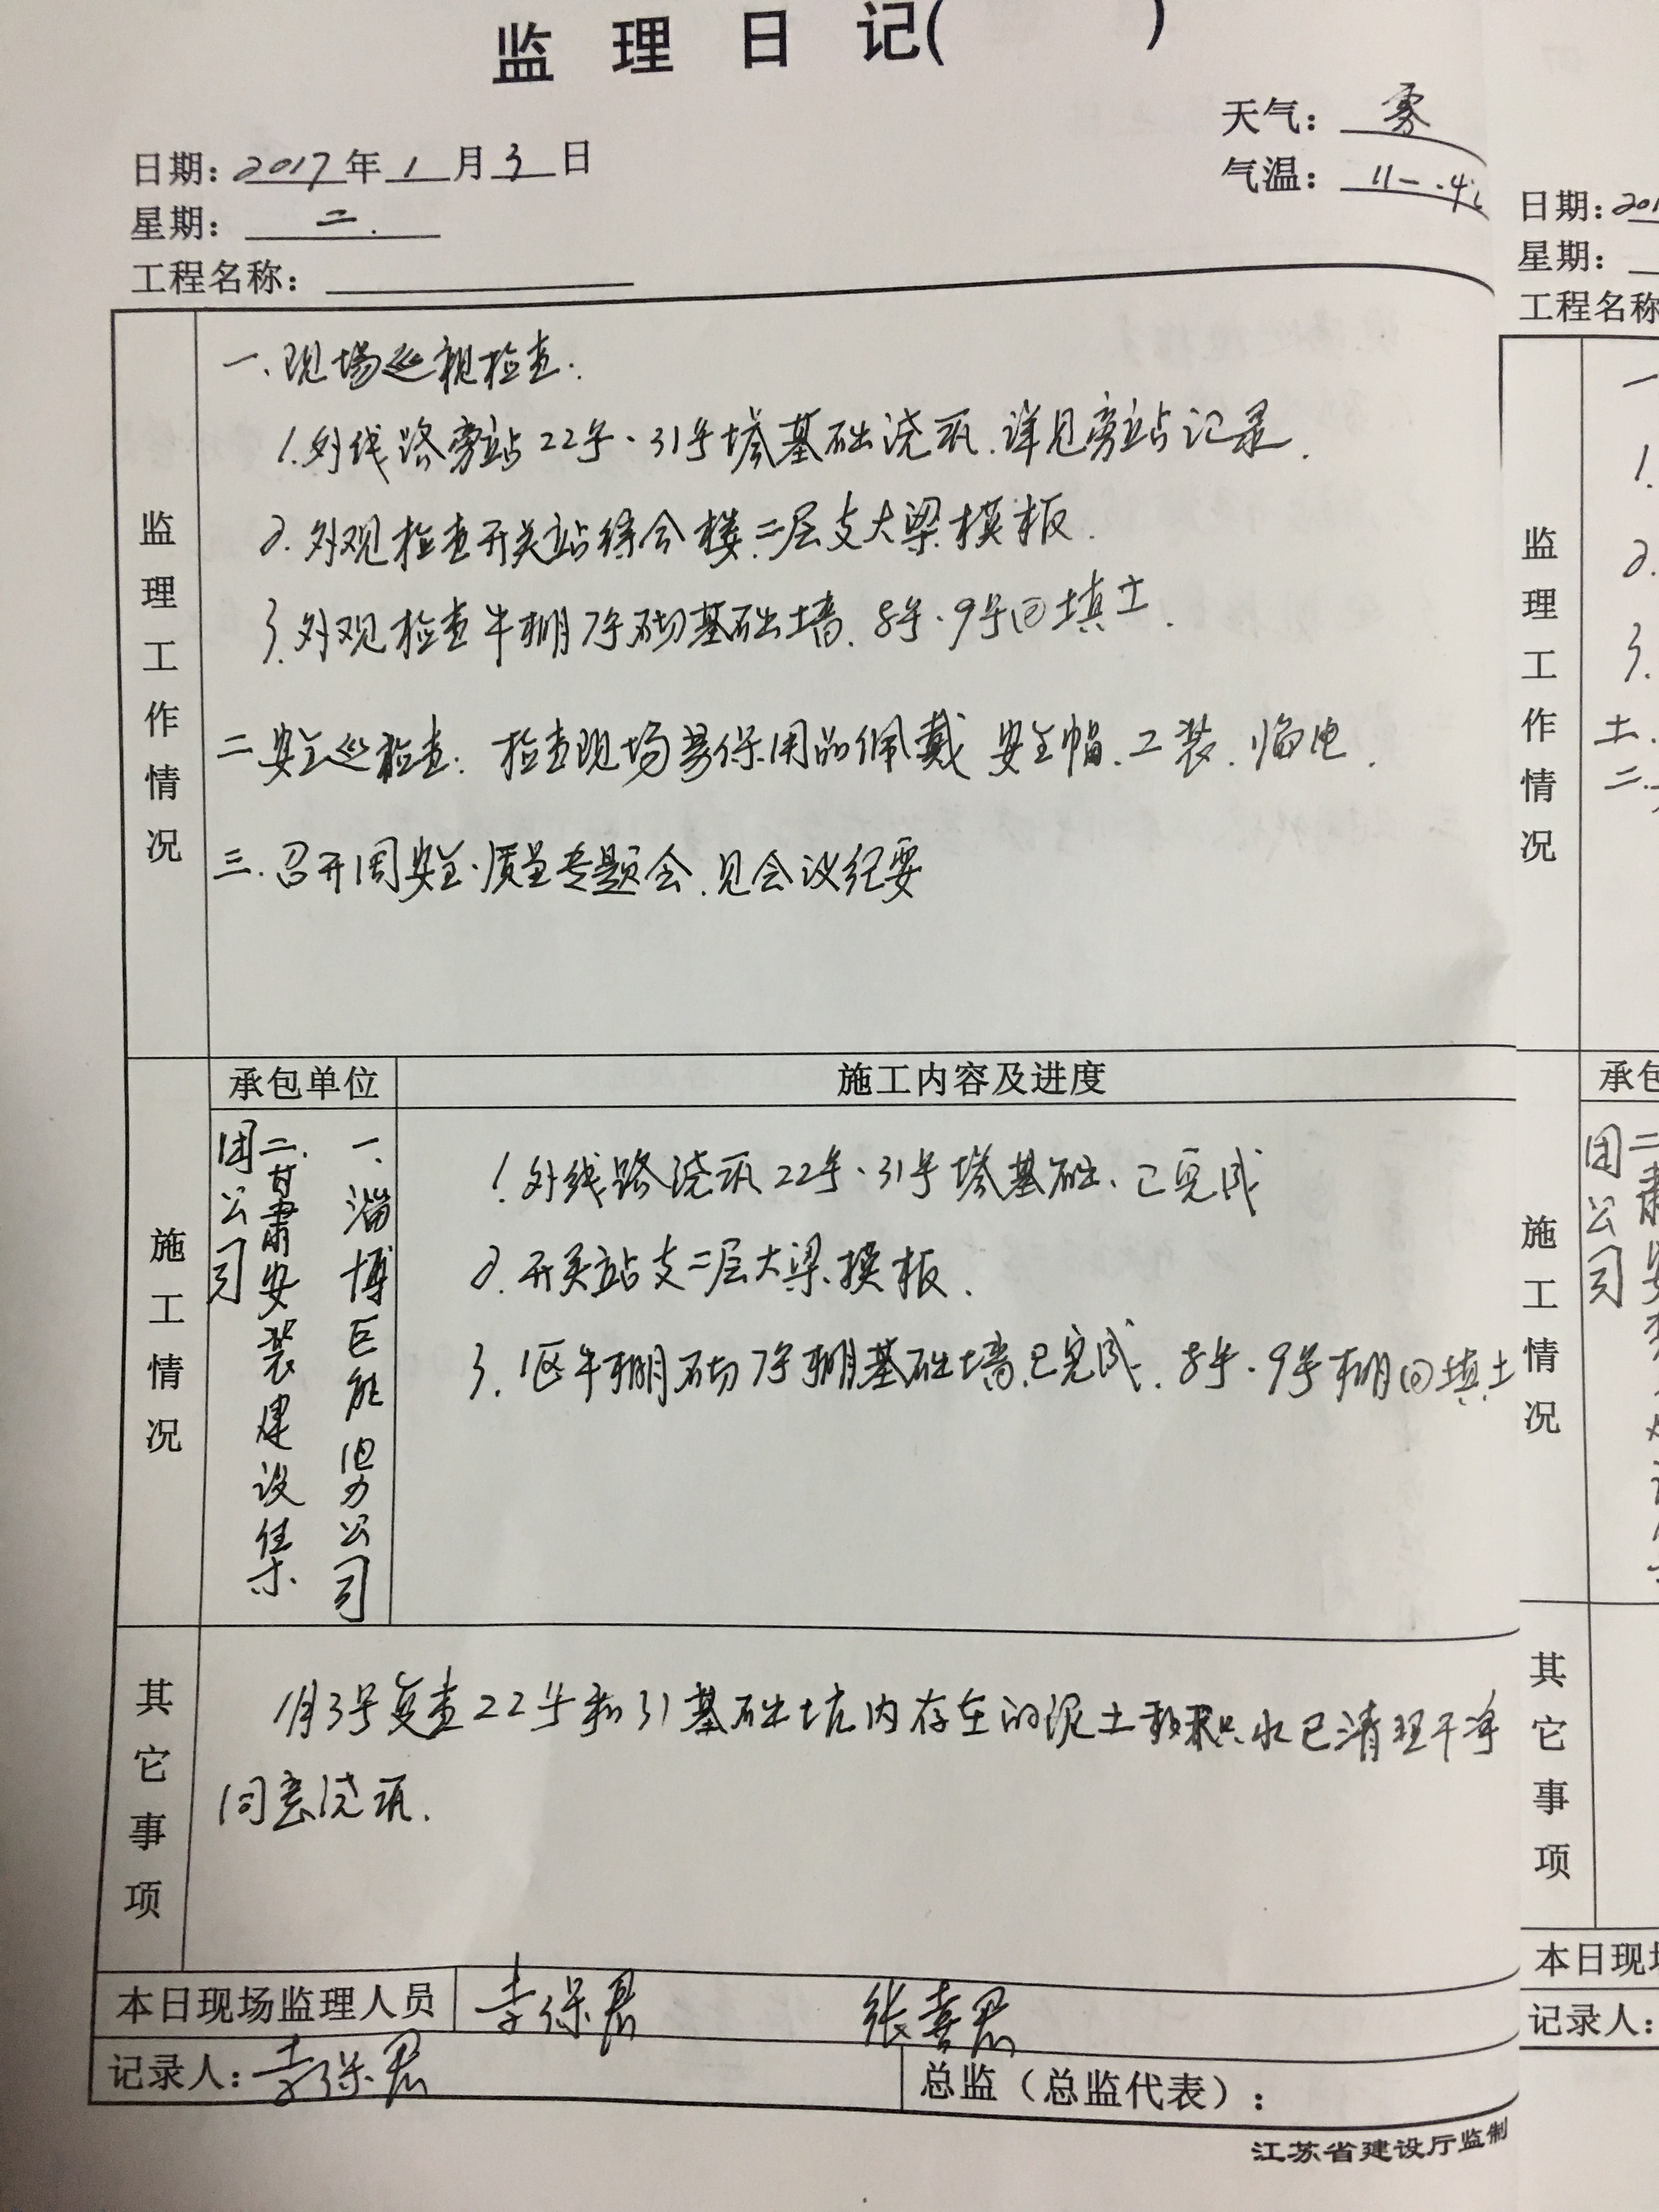 监理日记(    )
天气：雾
日期：2017年1月3日
气温：11－-4℃
星期：二.
工程名称：
监理工作情况
一、现场巡视检查.
1.外线路旁站22号、31号塔基础浇筑.详见旁站记录.
2.外观检查开关站综合楼二层支大梁模板.
3.外观检查牛棚7号砌基础墙、8号、9号回填土.
二.安全巡检查：检查现场劳保用品佩戴 安全帽、工装、临电.
三.召开周安全、质量专题会、见会议纪要
施工情况
承包单位
施工内容及进度
一、淄博巨能电力公司
二.甘肃安装建设集
团公司
1.外线路浇筑22号、31号塔基础、已完成
2.开关站支二层大梁模板.
3.1区牛棚砌7号棚基础墙已完成、8号、9号棚回填土
其它事项
1月3号复查22号和31基础坑内存在的泥土和积水已清理干净
同意浇筑.
本日现场监理人员 李保君 张喜君
记录人：李保君
总监（总监代表）：
江苏省建设厅监制
日期：201
星期：
工程名称
监理工作情况
一
1.
2.
3.
土.
二.
承包
团公司
施工情况
其它事项
本日现场
记录人：